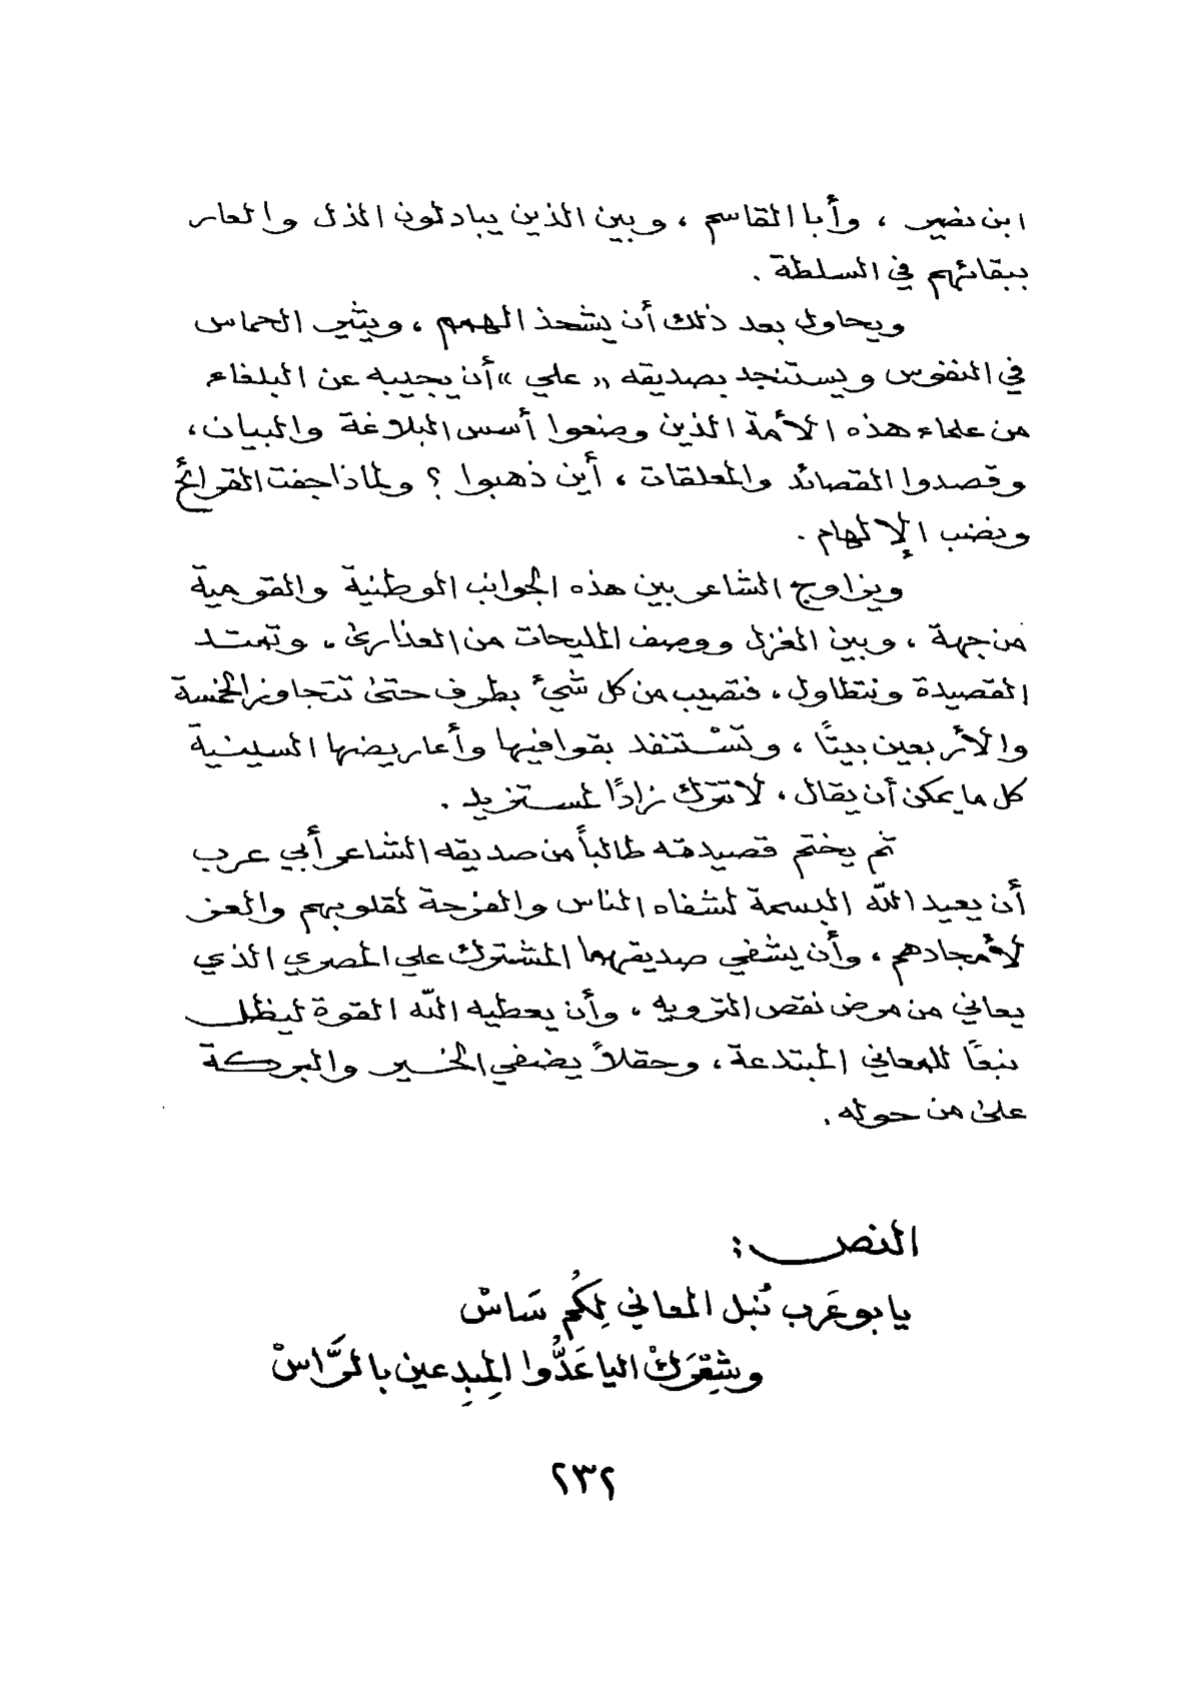 ابن نصير ، وأبا القاسم ، وبين الذين يبادلون الذل والعار
ببقائهم في السلطة .
ويحاول بعد ذلك أن يشحذ الهمم ، ويثير الحماس
في النفوس ويستنجد بصديقه « علي » أن يجيبه عن البلغاء
من علماء هذه الأمة الذين وضعوا أسس البلاغة والبيان ،
وقصدوا القصائد والمعلقات ، أين ذهبوا ؟ ولماذا جفت القرائح
ونضب الإلهام .
ويزاوج الشاعر بين هذه الجوانب الوطنية والقومية
من جهة ، وبين الغزل ووصف المليحات من العذارى . وتمتد
القصيدة وتتطاول ، فتصيب من كل شيء بطرف حتى تتجاوز الخمسة
والأربعين بيتًا ، وتسْتنفد بقوافيها وأعاريضها السينية
كل ما يمكن أن يقال ، لا تترك زادًا لمستزيد .
ثم يختم قصيدته طالباً من صديقه الشاعر أبي عرب
أن يعيد الله البسمة لشفاه الناس والفرحة لقلوبهم والعز
لأمجادهم ، وأن يشفي صديقهما المشترك علي المصري الذي
يعاني من مرض نقص التروية ، وأن يعطيه الله القوة ليظل
نبعًا للمعاني المبتدعة ، وحقلاً يضفي الخير والبركة
على من حوله .
النص :
يا بو عَرب نُبل المعاني لِكُم سَاسْ
وشِعْرَكْ اليا عَدُّوا المِبدِعين بالرَّاسْ
٢٣٢